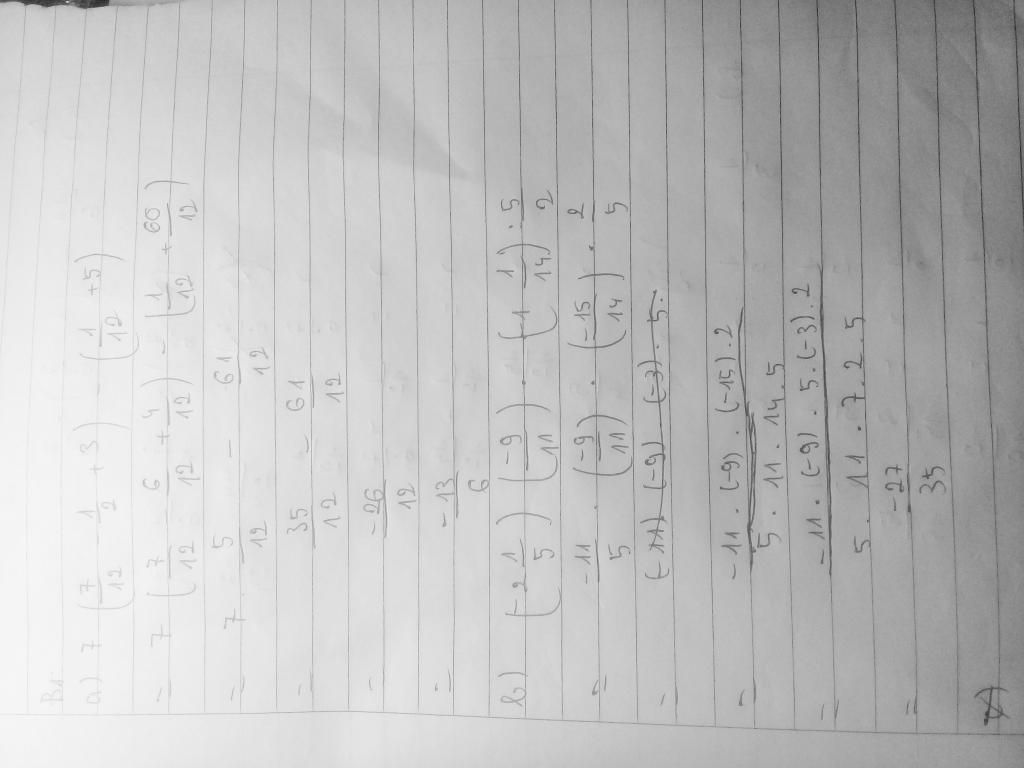 B1:
a) 7 (7/12 - 1/2 + 3) - (1/12 + 5)
= 7 (7/12 - 6/12 + 4/12) - (1/12 + 60/12)
= 7 . 5/12 - 61/12
= 35/12 - 61/12
= -26/12
= -13/6
b) (-2 1/5) . (-9/11) . (-1 1/14) . 5/2
= -11/5 . (-9/11) . (-15/14) . 2/5
= -11 . (-9) . (-15) . 2 / 5 . 11 . 14 . 5
= -11 . (-9) . 5 . (-3) . 2 / 5 . 11 . 7 . 2 . 5
= -27/35